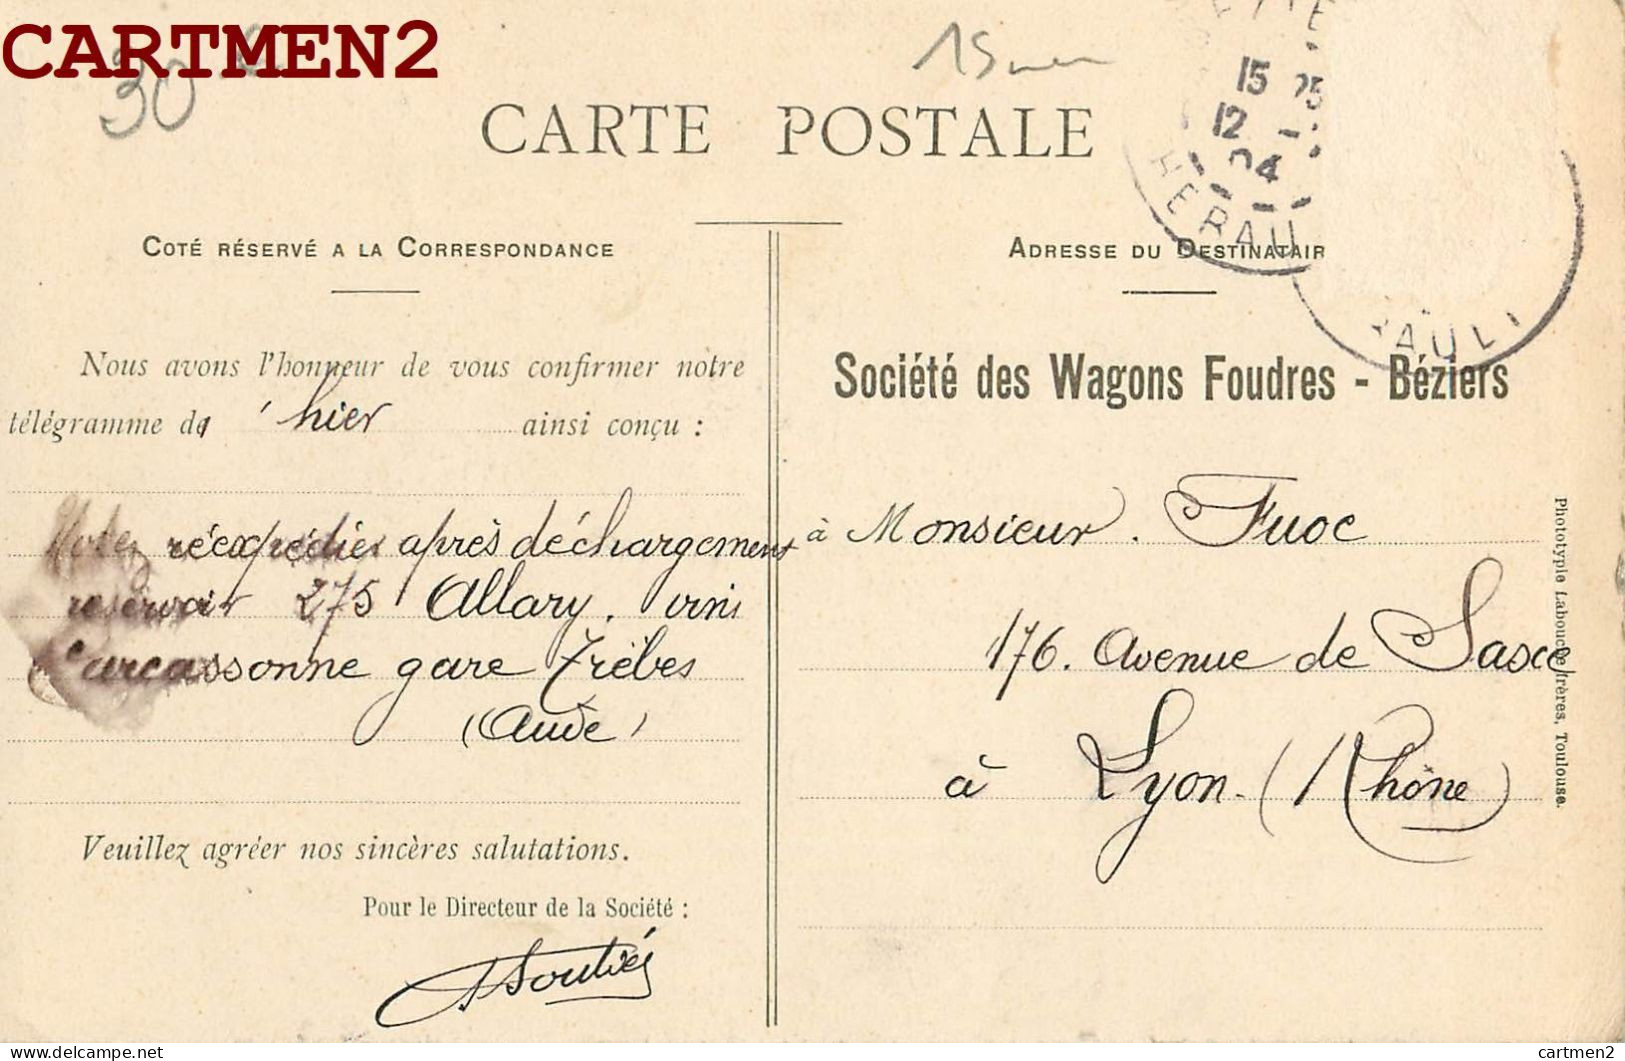 CARTMEN2
30 €
15
CARTE POSTALE
15 25
12 -
04
HERAU
RAULT
COTÉ RÉSERVÉ A LA CORRESPONDANCE
Nous avons l'honneur de vous confirmer notre
télégramme d hier ainsi conçu :
réexpédier après déchargement
réservoir 275 Allary. vins
Carcassonne gare Trèbes
(Aude)
Veuillez agréer nos sincères salutations.
Pour le Directeur de la Société :
ADRESSE DU DESTINATAIR
Société des Wagons Foudres - Béziers
à Monsieur. Fuoc
176. Avenue de Saxe
à Lyon. (Rhône)
Phototypie Labouche frères, Toulouse.
Delcampe.net
cartmen2